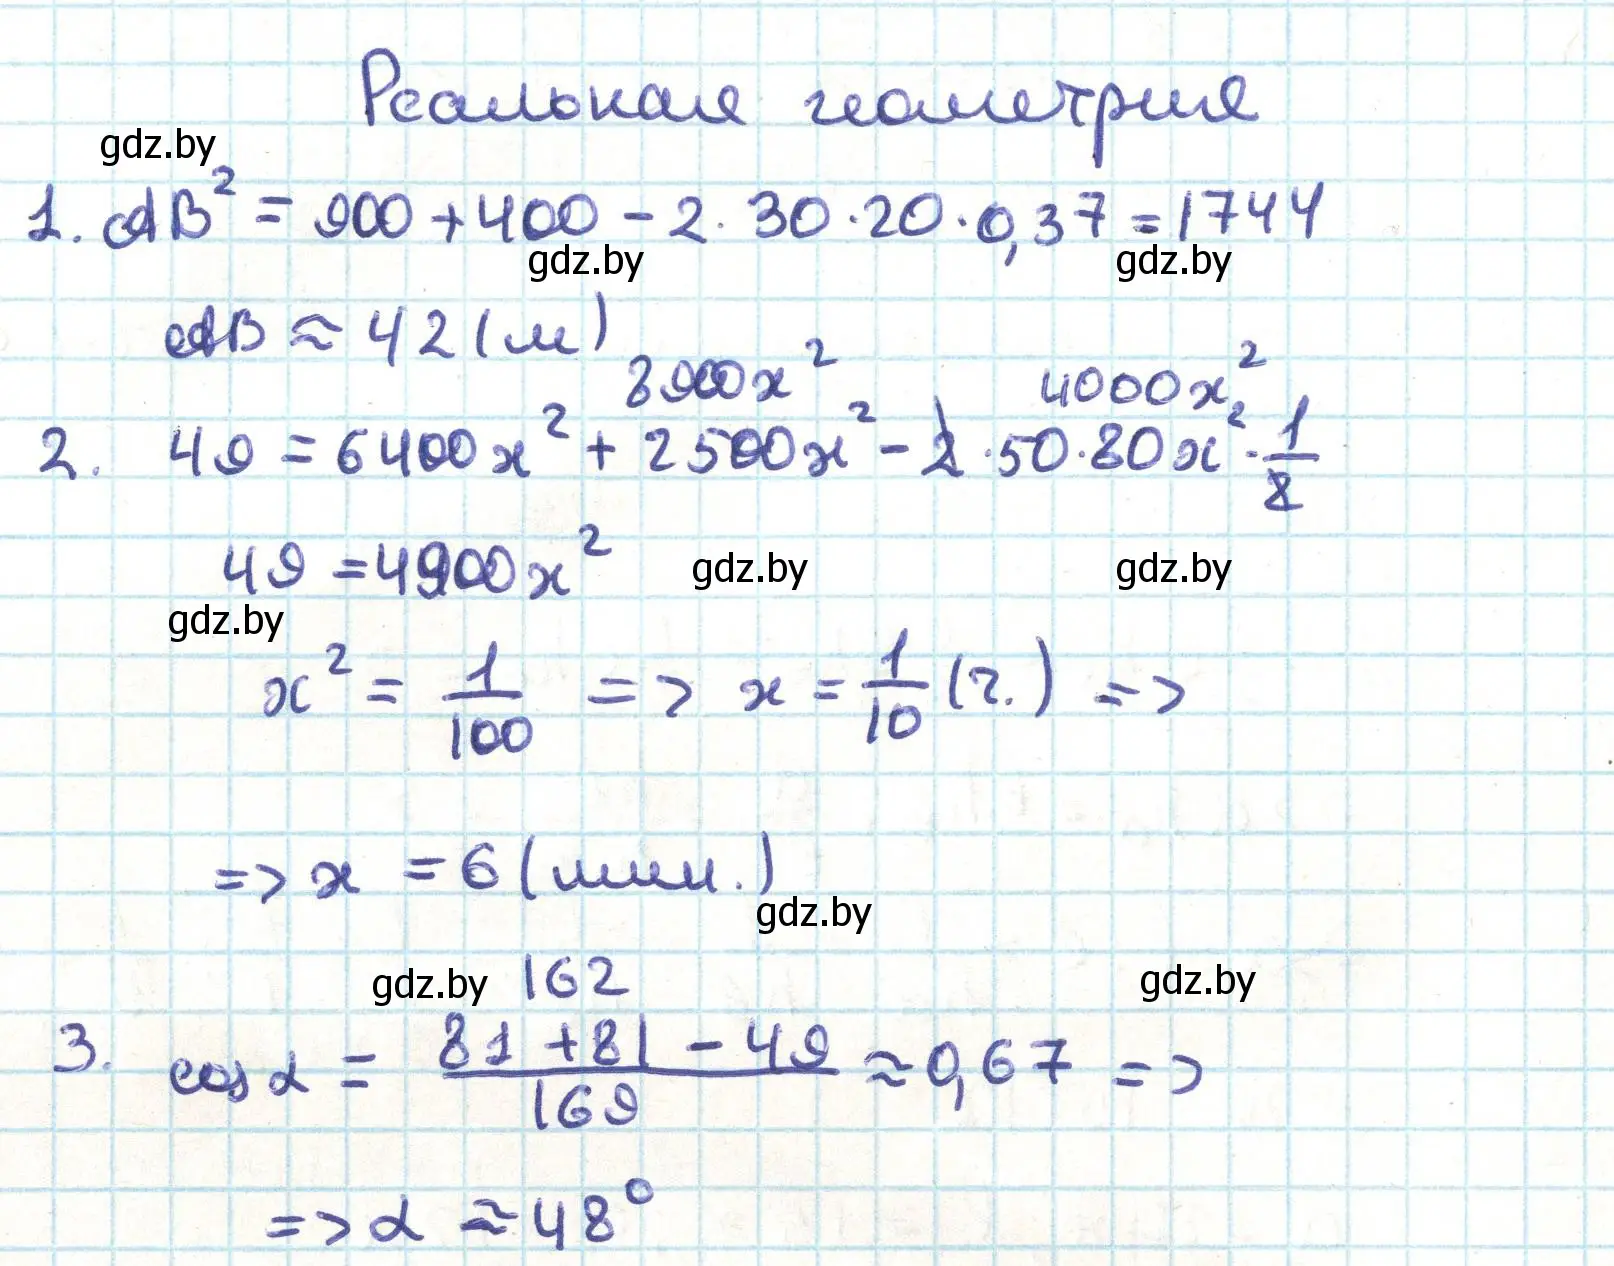 Реальная геометрия
gdz.by
1. AB² = 900 + 400 - 2 · 30 · 20 · 0,37 = 1744
gdz.by gdz.by
AB ≈ 42 (м)
8900x² 4000x²
2. 49 = 6400x² + 2500x² - 2 · 50 · 80x² · 1/8
49 = 4900x² gdz.by gdz.by
gdz.by
x² = 1/100 => x = 1/10 (ч.) =>
=> x = 6 (мин.)
gdz.by
gdz.by 162 gdz.by
3. cos α = (81 + 81 - 49)/169 ≈ 0,67 =>
=> α ≈ 48°